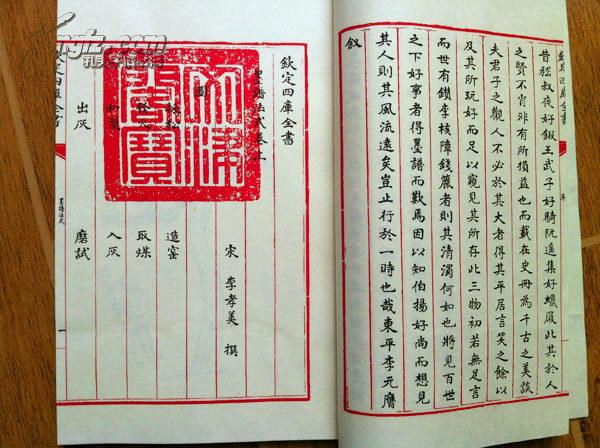 欽定四庫全書
昔嵇叔夜好鍛王武子好騎阮遥集好蠟屐此其於人
之賢不肖非有所損益也而載在史冊為千古之美談
夫君子之觀人不必於其大者得其平居言笑之餘以
及其所玩好而足以窺見其所存此三物初若無足言
而世有鑽李核障錢簏者則其清濁何如也將見百世
之下好事者得墨譜而歎焉因以知伯揚好尚而想見
其人則其風流遠矣豈止行於一時也哉東平李元膺
叙
欽定四庫全書
墨譜法式卷上
文淵閣寶
宋 李孝美 撰
圖
採松 造窰
發火 取煤
和製 入灰
出灰 磨試
墨譜法式
一